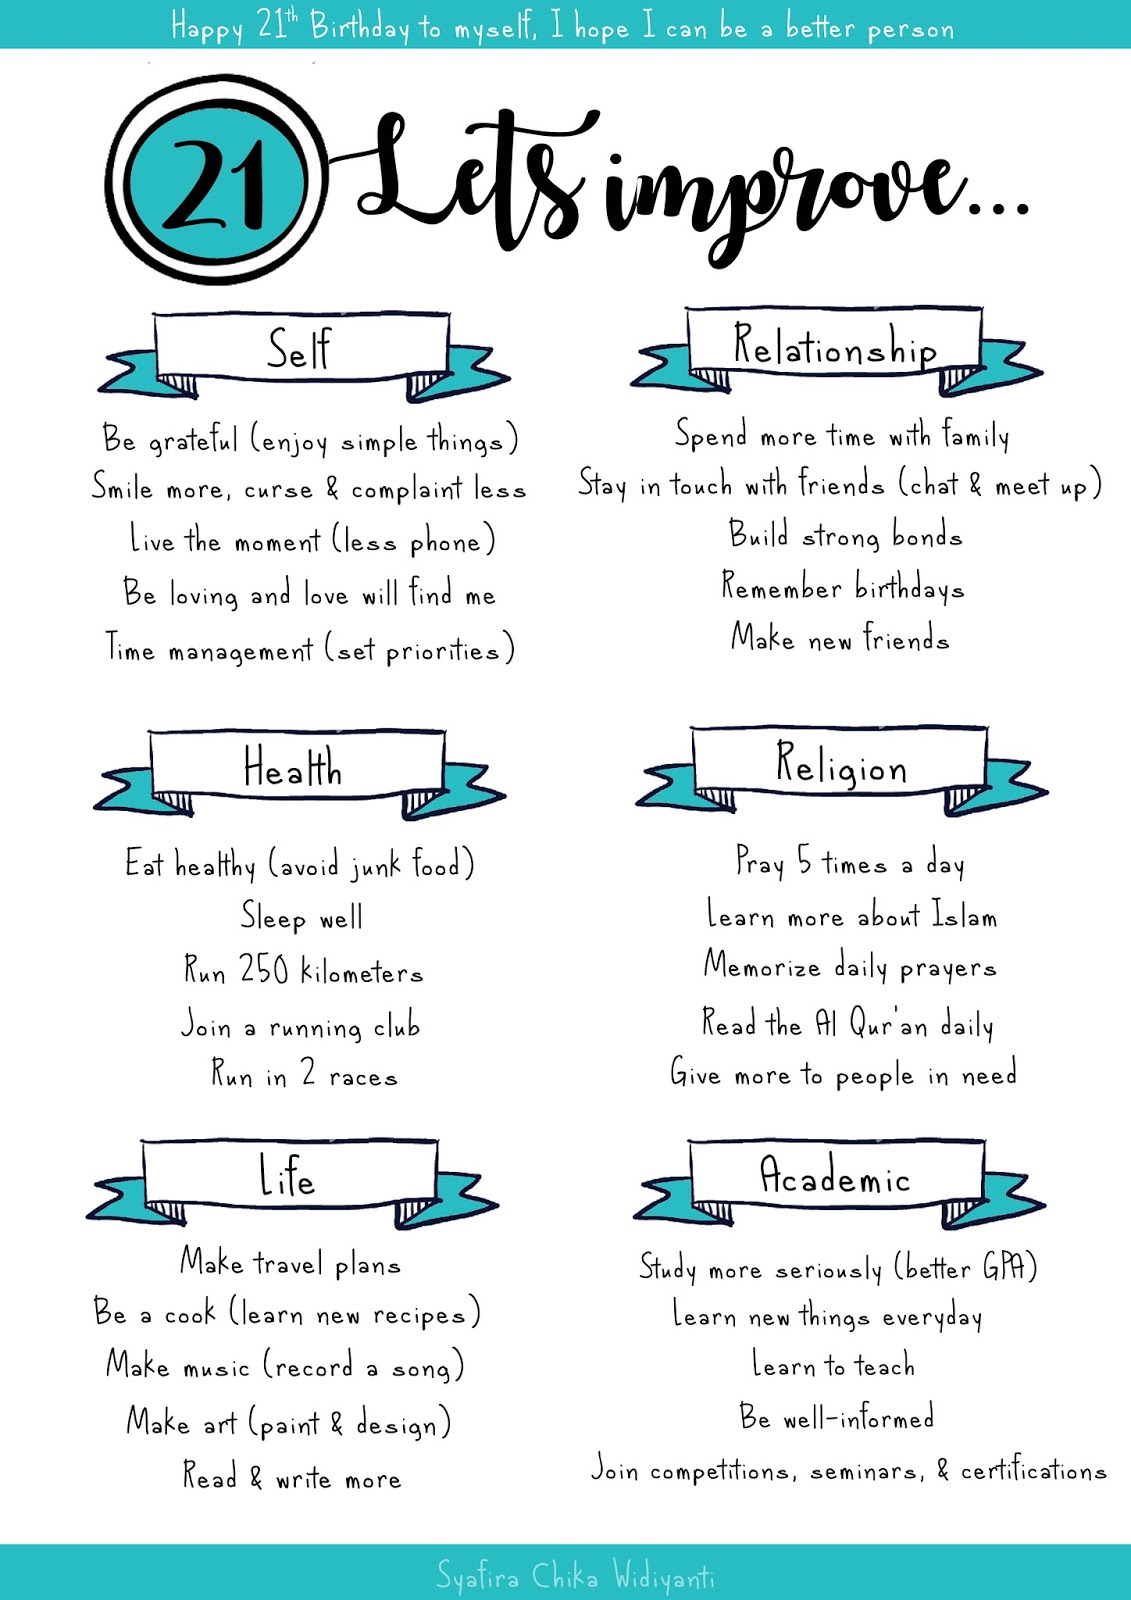 Happy 21th Birthday to myself, I hope I can be a better person
21 Lets improve...
Self
Be grateful (enjoy simple things)
Smile more, curse & complaint less
Live the moment (less phone)
Be loving and love will find me
Time management (set priorities)
Relationship
Spend more time with family
Stay in touch with friends (chat & meet up)
Build strong bonds
Remember birthdays
Make new friends
Health
Eat healthy (avoid junk food)
Sleep well
Run 250 kilometers
Join a running club
Run in 2 races
Religion
Pray 5 times a day
Learn more about Islam
Memorize daily prayers
Read the Al Qur'an daily
Give more to people in need
Life
Make travel plans
Be a cook (learn new recipes)
Make music (record a song)
Make art (paint & design)
Read & write more
Academic
Study more seriously (better GPA)
Learn new things everyday
Learn to teach
Be well-informed
Join competitions, seminars, & certifications
Syafira Chika Widiyanti